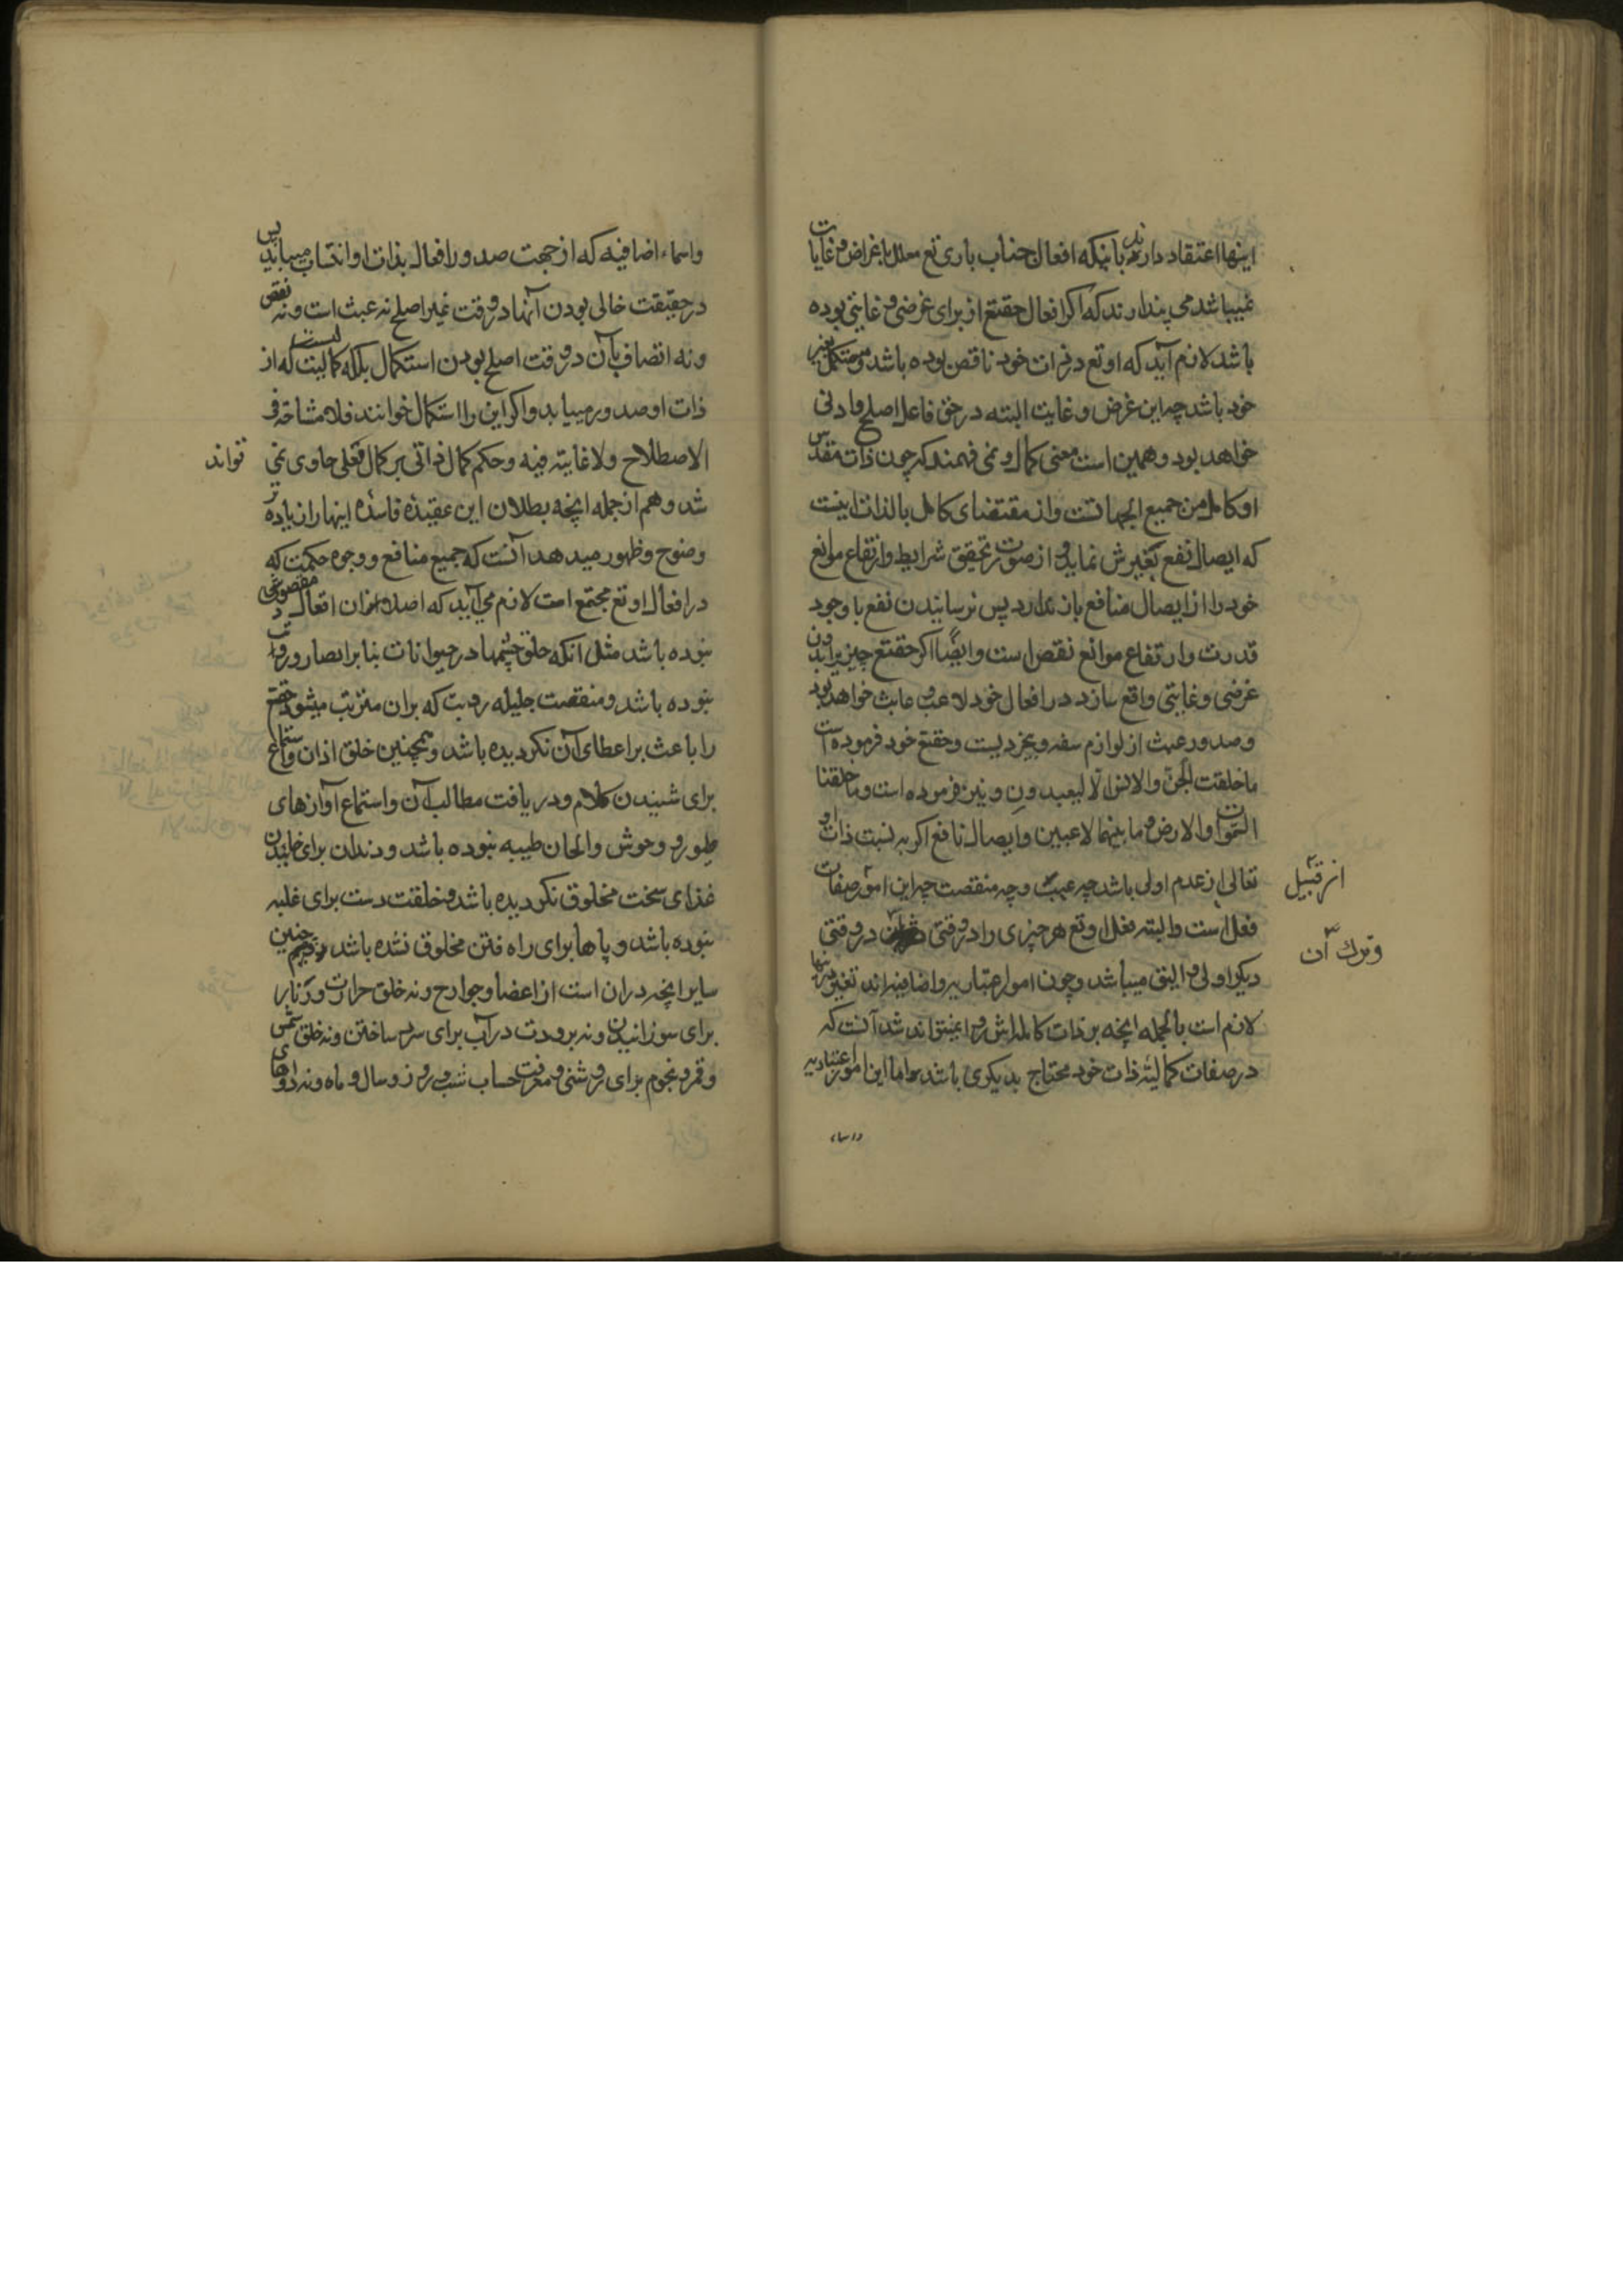 اینها اعتقاد دارند بانیکه افعال جناب باری تع معلل باغراض و غایات
نمیباشد می پندارند که اکر افعال حقتع از برای غرضی و غایتی بوده
باشد لازم آید که او تع در ذات خود ناقص بوده باشد و مستکمل بغیر
خود باشد چه این غرض و غایت البته در حق فاعل اصلح و اولی
خواهد بود و همین است معنی کمال و نمی فهمند که چون ذات مقدس
او کامل من جمیع الجهاتست و از مقتضای کامل بالذات اینست
که ایصال نفع بغیرش نماید و از صورت تحقیق شرایط و ارتفاع موانع
خود را از ایصال منافع باز ندارد پس نرسانیدن نفع با وجود
قدرت و ارتفاع موانع نقص است و ایضًا اکر حقتع چیزیرا بدون
غرضی و غایتی واقع سازد در افعال خود لاعب و عابث خواهد بود
و صدور عبث از لوازم سفه و بیخردیست و حقتع خود فرموده است
ما خلقت الجن والانس الا لیعبدون و نیز فرموده است و ما خلقنا
السموات والارض و ما بینهما لاعبین و ایصال نافع اکر به نسبت ذات او
تعالی از عدم اولی باشد چه عیبت و چه منقصت چه این امور صفات
از قبیل
فعل است و البته فعل او تع هر چیزی را در وقتی در وقتی
و ترك آن
دیکر اولی و الیق میباشد و چون امور اعتباریه و اضافیه اند تغییر
لازم است بالجمله آنچه بر ذات کامل اش روا نمیتواند شد آنست که
در صفات کمالیۀ ذات خود محتاج بدیکری باشد و اما این امور اعتباریه
و اسماء
و اسماء اضافیه که از جهت صدور افعال بذات او انتساب مییابد پس
در حقیقت خالی بودن آنها در وقت غیر اصلح نه عبث است و نه نقص
و نه اتصاف بآن در وقت اصلح بودن استکمال بلکه کمالیت است که از
ذات او صدور مییابد و اکر این را استکمال خوانند فلا مشاحة فی
الاصطلاح ولا غایته فیه و حکم کمال ذاتی بر کمال فعلی حاوی نمی
تواند
شد و هم از جمله آنچه بطلان این عقیدۀ فاسدۀ اینها را زیاده تر
وضوح و ظهور میدهد آنست که جمیع منافع و وجوه حکمت که
در افعال او تع مجتمع است لازم می آید که اصلا ازان افعال مقصود وی
نبوده باشد مثل آنکه خلق چشمها در حیوانات بنابر ابصار و رویت
نبوده باشد و منقصت جلیله رویت که بران مترتب میشود حقتع
را باعث بر اعطای آن نکردیده باشد و همچنین خلق اذان و استماع
برای شنیدن کلام و دریافت مطالب آن و استماع آوازهای
طیور و وحوش و الحان طیبه نبوده باشد و دندان برای خاییدن
غذای سخت مخلوق نکردیده باشد و خلقت دست برای غلبه
نبوده باشد و پاها برای راه فتن مخلوق نشده باشد و همچنین
سایر آنچه دران است از اعضا و جوارح و نه خلق حرارت در نار
برای سوزانیدن و نه برودت در آب برای سرد ساختن و نه خلق شمس
و قمر و نجوم برای روشنی و معرفت حساب شب و روز و سال و ماه و نه دواهای